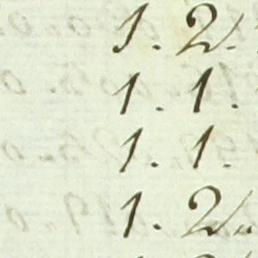 1. 2.
1. 1.
1. 1.
1. 2.